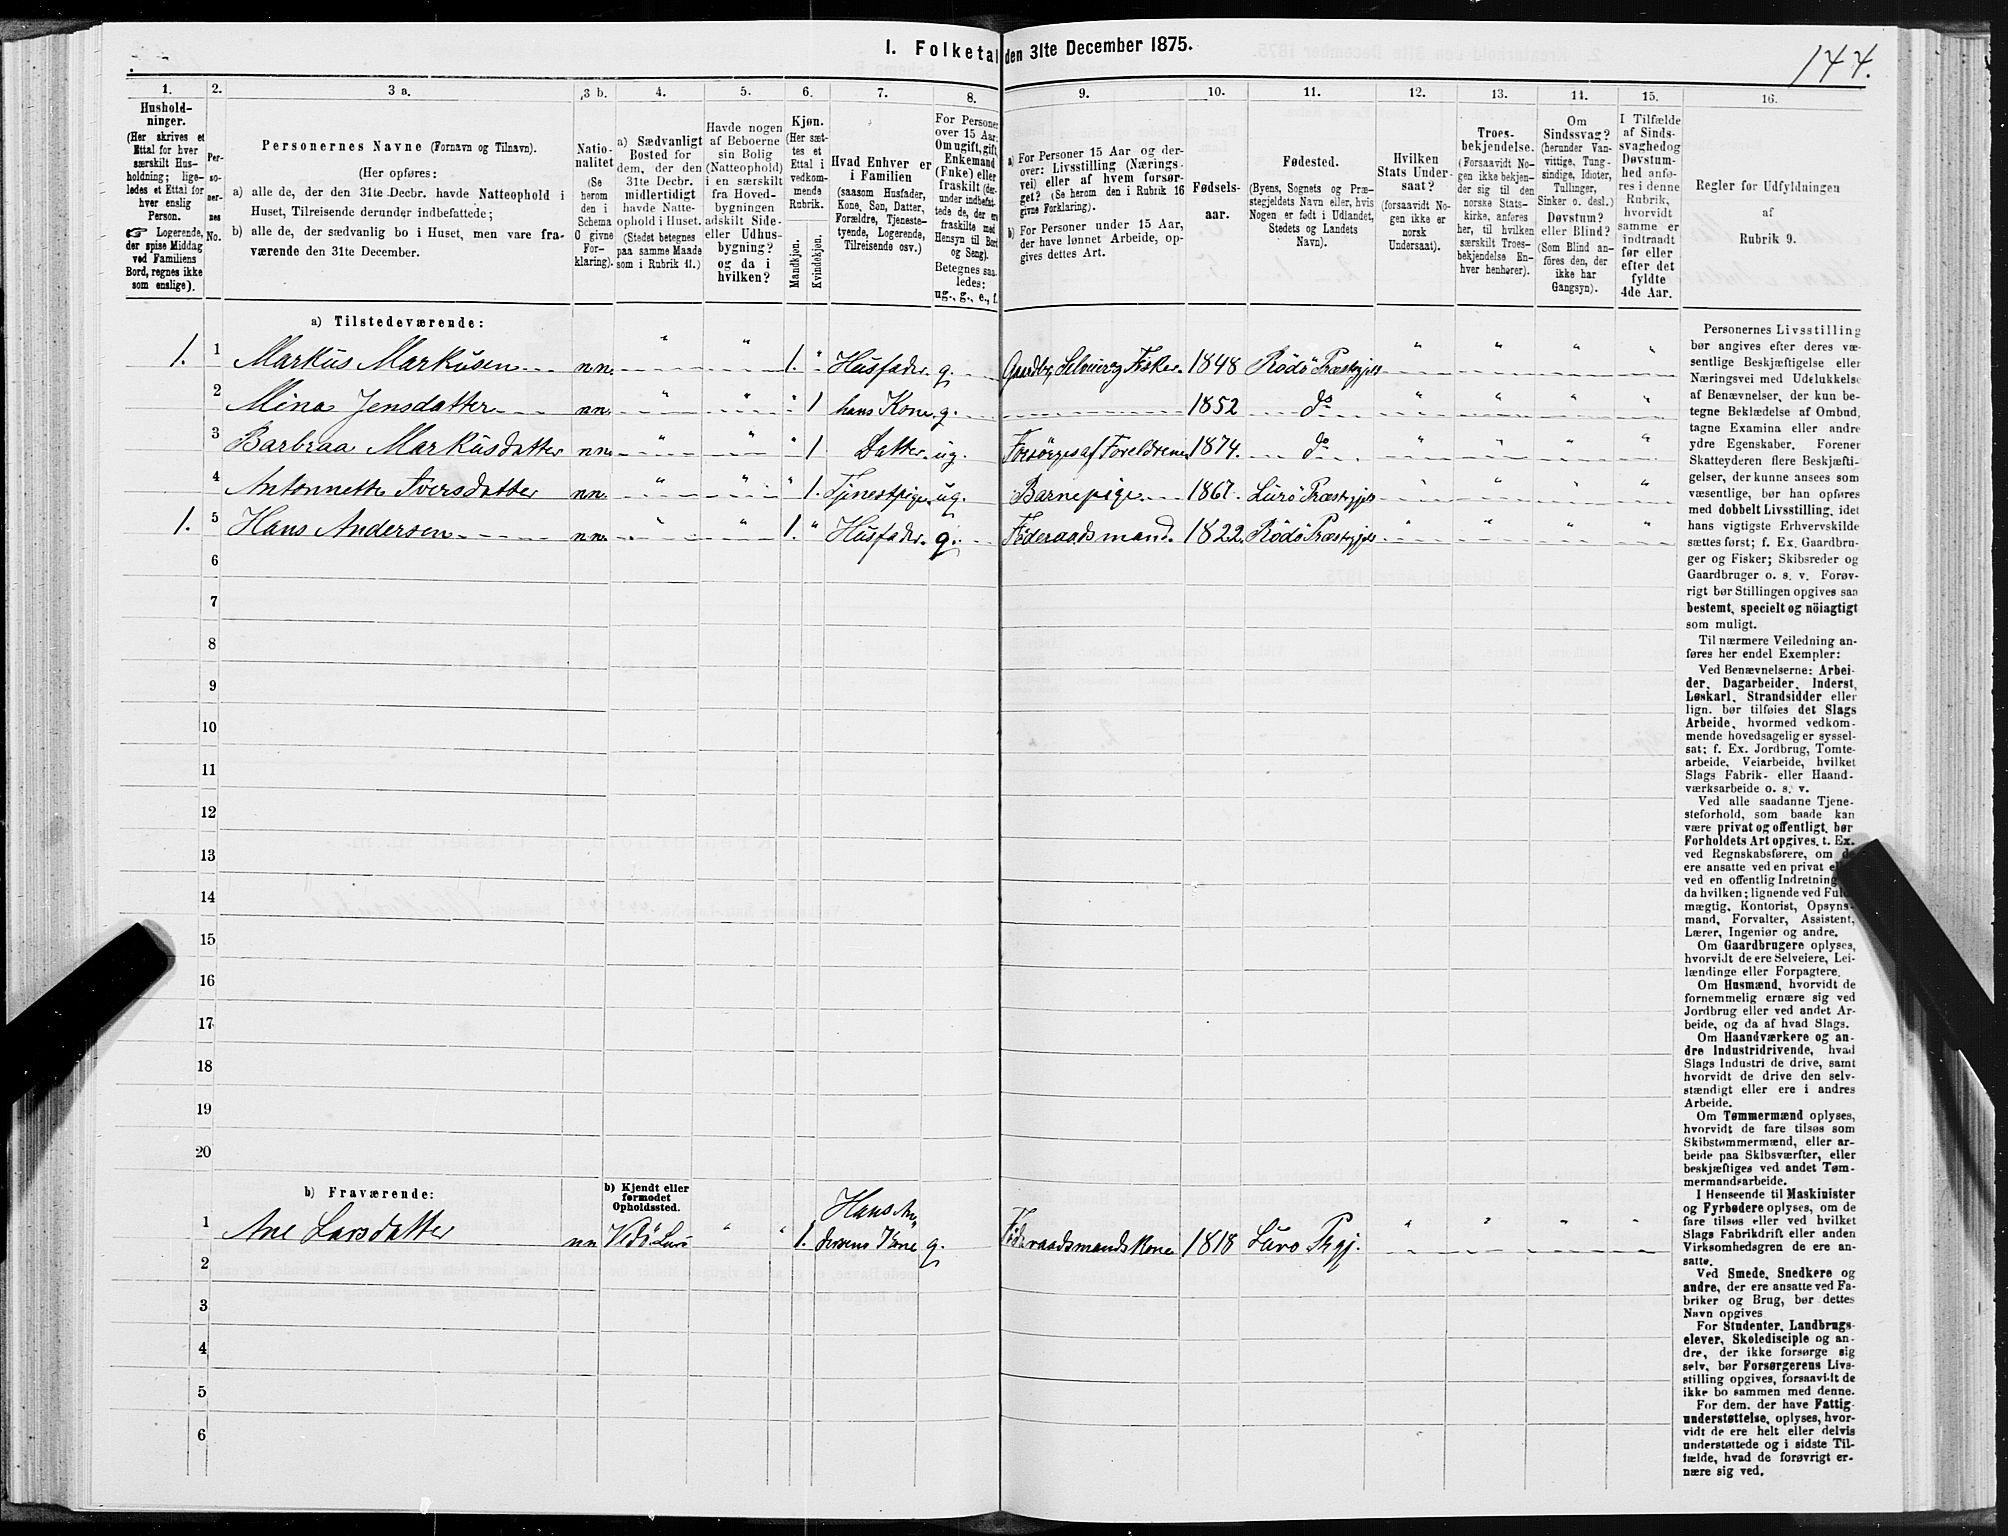 I. Folketal den 31te December 1875.
144.
1.
2.
3 a.
3 b.
4.
5.
6.
7.
8.
9.
10.
11.
12.
13.
14.
15.
16.
Hushold-
ninger.
(Her skrives et
Ettal for hver
særskilt Hus-
holdning; lige-
ledes et Ettal for
hver enslig
Person.
☞ Logerende,
der spise Middag
ved Familiens
Bord, regnes ikke
som enslige).
Per-
so-
ner-
nes
No.
Personernes Navne (Fornavn og Tilnavn).
(Her opføres:
a) alle de, der den 31te Decbr. havde Natteophold i
Huset, Tilreisende derunder indbefattede;
b) alle de, der sædvanlig bo i Huset, men vare fra-
værende den 31te December.
Natio-
nalitet
(Se
herom
den i
Schema
O givne
For-
klaring).
a) Sædvanligt
Bosted for
dem, der den
31te Decbr.
midlertidigt
havde Natte-
ophold i Huset.
(Stedet betegnes
paa samme Maade
som i Rubrik 11.)
Havde nogen
af Beboerne
sin Bolig
(Natteophold)
i en særskilt
fra Hoved-
bygningen
adskilt Side-
eller Udhus-
bygning?
og da i
hvilken?
Kjøn.
(Her sæt-
tes et
Ettal i
vedkom-
mende
Rubrik.
Mandkjøn.
Kvindekjøn.
Hvad Enhver er
i Familien
(saasom Husfader,
Kone, Søn, Datter,
Forældre, Tjeneste-
tyende, Logerende,
Tilreisende osv.)
For Personer
over 15 Aar:
Om ugift, gift,
Enkemand
(Enke) eller
fraskilt (der-
under indbefat-
tede de, der er
fraskilte med
Hensyn til Bord
og Seng).
Betegnes saa-
ledes:
ug., g., e., f.
a) For Personer 15 Aar og der-
over: Livsstilling (Nærings-
vei) eller af hvem forsør-
get? (Se herom den i Rubrik 16
givne Forklaring).
b) For Personer under 15 Aar,
der have lønnet Arbeide, op-
gives dettes Art.
Fødsels-
aar.
Fødested.
(Byens, Sognets og Præ-
stegjeldets Navn eller, hvis
Nogen er født i Udlandet,
Stedets og Landets
Navn).
Hvilken
Stats Under-
saat?
(forsaavidt No-
gen ikke er
norsk
Undersaat).
Troes-
bekjendelse.
(Forsaavidt No-
gen ikke bekjen-
der sig til den
norske Stats-
kirke, anføres
her, til hvilken
særskilt Troes-
bekjendelse En-
hver henhører).
Om
Sindssvag?
(herunder Van-
vittige, Tung-
sindige, Idioter,
Tullinger,
Sinker o. desl.)
Døvstum?
eller Blind?
(Som Blind an-
føres den, der
ikke har
Gangsyn).
I Tilfælde
af Sinds-
svaghed og
Døvstum-
hed anfø-
res i denne
Rubrik,
hvorvidt
samme er
indtraadt
før eller
efter det
fyldte
4de Aar.
Regler for Udfyldningen
af
Rubrik 9.
a) Tilstedeværende:
1. 1 Markus Markusen n.n. " " 1. " Husfader. g. Gaardbr. Selveier og Fisker. 1848 Rödö Præstgjeld " " " "
2 Mina Jensdatter n.n. " " " 1 hans Kone. g. 1852 do " " " "
3 Barbraa Markusdatter n.n. " " " 1 Datter. ug. Forsörges af Foreldrene 1874. do " " " "
4 Antonnette Iversdatter n.n. " " " 1. Tjenestpige. ug. Barnepige 1867. Lurö Præstgjeld " " " "
1. 5 Hans Andersen n.n. " " 1. " Husfader. g. Föderaadsmand. 1822. Rödö Præstgjeld " " " "
6
7
8
9
10
11
12
13
14
15
16
17
18
19
20
b) Fraværende:
b) Kjendt eller
formodet
Opholdssted.
1 Ane Larsdatter n n Lurö " " 1. Hans An-
dersens Kone g. Föderaadsmands Kone 1818 Lurö Prgj. " " " "
2
3
4
5
6
Personernes Livsstilling
bør angives efter deres væ-
sentlige Beskjæftigelse eller
Næringsvei med Udelukkelse
af Benævnelser, der kun be-
tegne Beklædelse af Ombud,
tagne Examina eller andre
ydre Egenskaber. Forener
Skatteyderen flere Beskjæfti-
gelser, der kunne ansees som
væsentlige, bør han opføres
med dobbelt Livsstilling, idet
hans vigtigste Erhvervskilde
sættes først; f. Ex. Gaardbru-
ger og Fisker; Skibsreder og
Gaardbruger o. s. v. Forøv-
rigt bør Stillingen opgives saa
bestemt, specielt og nöiagtigt
som muligt.
Til nærmere Veiledning an-
føres her endel Exempler:
Ved Benævnelserne: Arbei-
der, Dagarbeider, Inderst,
Løskarl, Strandsidder eller
lign. bør tilføies det Slags
Arbeide, hvormed vedkom-
mende hovedsagelig er syssel-
sat; f. Ex. Jordbrug, Tomte-
arbeide, Veiarbeide, hvilket
Slags Fabrik- eller Haand-
værksarbeide o. s. v.
Ved alle saadanne Tjene-
steforhold, som baade kan
være privat og offentligt, bør
Forholdets Art opgives, t. Ex.
ved Regnskabsførere, om de
ere ansatte ved en privat eller
ved en offentlig Indretning
da hvilken; lignende ved Fuld-
mægtig, Kontorist, Opsyns-
mand, Forvalter, Assistent,
Lærer, Ingeniør og andre.
Om Gaardbrugere oplyses,
hvorvidt de ere Selveiere, Lei-
lændinge eller Forpagtere.
Om Husmænd, hvorvidt de
fornemmelig ernære sig ved
Jordbrug eller ved andet Ar-
beide, og da af hvad Slags.
Om Haandværkere og an-
dre Industridrivende, hvad
Slags Industri de drive, samt
hvorvidt de drive den selv-
stændigt eller ere i andres
Arbeide.
Om Tømmermænd oplyses,
hvorvidt de fare tilsøs som
Skibstømmermænd, eller ar-
beide paa Skibsværfter, eller
beskjæftiges ved andet Tøm-
mermandsarbeide.
I Henseende til Maskinister
og Fyrbødere oplyses, om de
fare tilsøs eller ved hvilket
Slags Fabrikdrift eller anden
Virksomhedsgren de ere an-
satte.
Ved Smede, Snedkere og
andre, der ere ansatte ved Fa-
briker og Brug, bør dettes
Navn opgives
For Studenter, Landbrugs-
elever, Skoledisciple og an-
dre, der ikke forsørge sig
selv, bør Forsørgerens Livs-
stilling opgives, forsaavidt de
ikke bo sammen med denne.
For dem, der have Fattig-
understøttelse, oplyses, hvor-
vidt de ere helt eller delvis
understøttede og i sidste Til-
fælde, hvad de forøvrigt er-
nære sig ved.